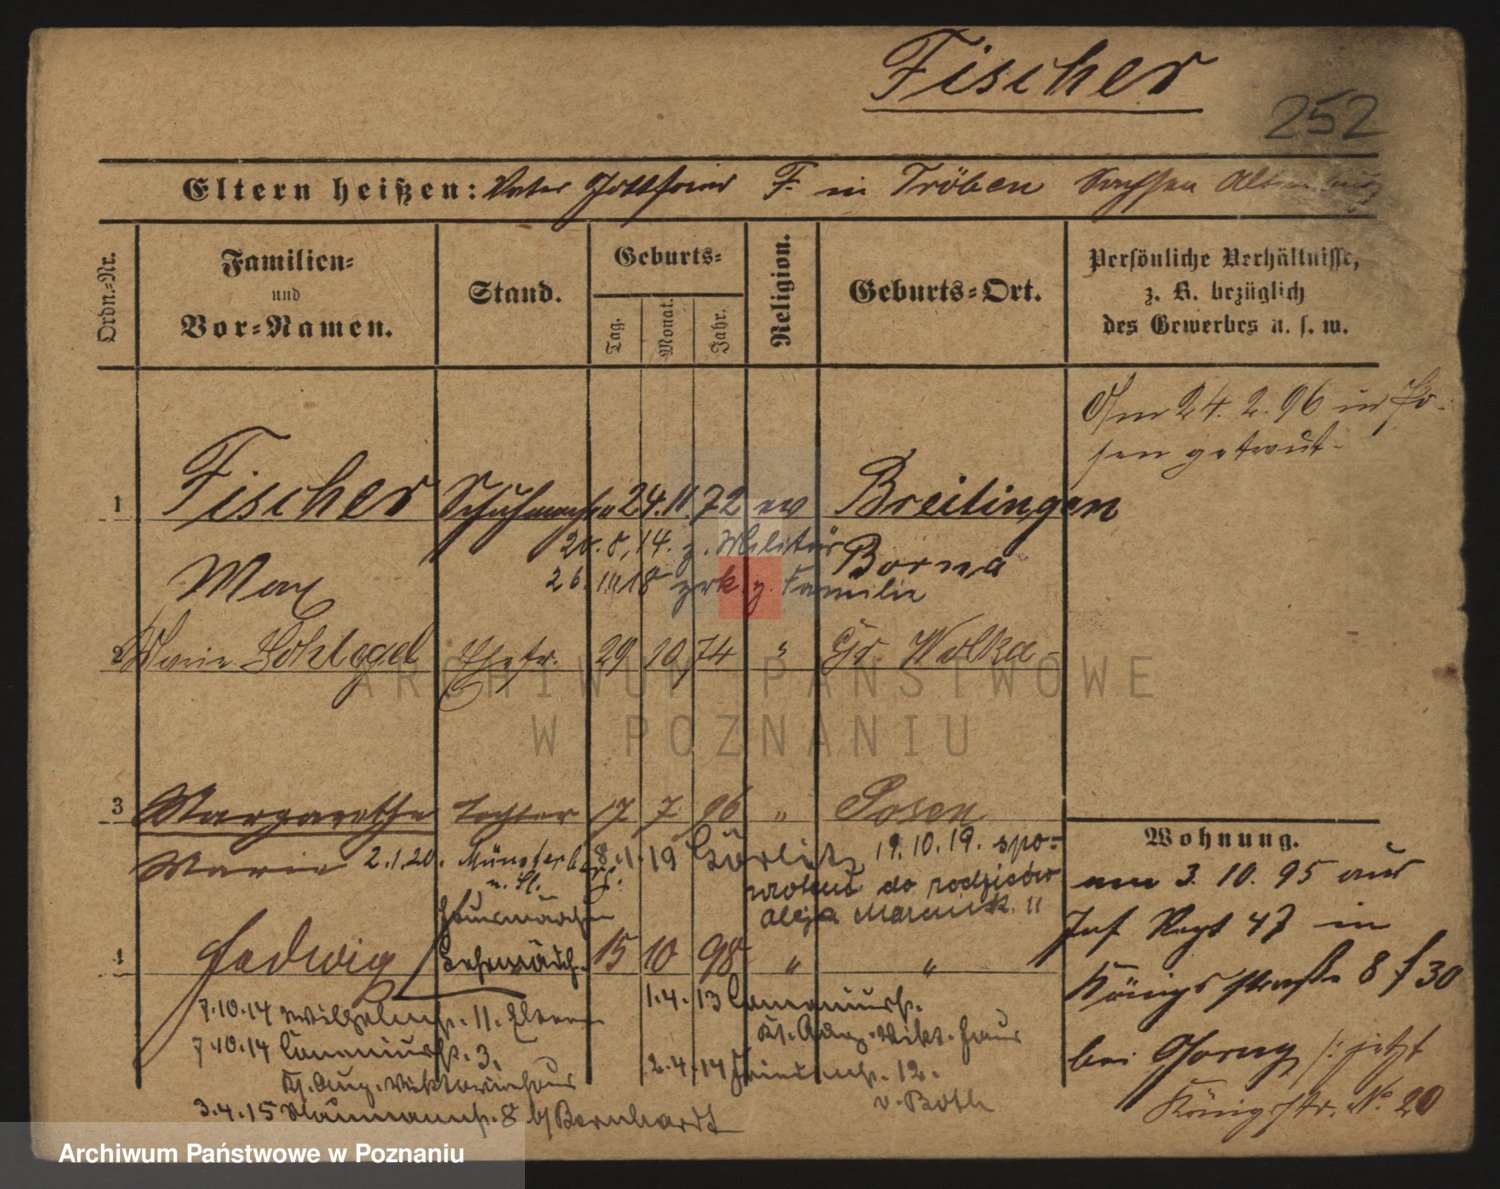 Fischer
252
Eltern heißen: Vater Gottfried F. in Tröben Sachsen Altenburg
Ordn.-Nr.
Familien-
und
Vor-Namen.
Stand.
Geburts-
Tag.
Monat.
Jahr.
Religion.
Geburts-Ort.
Persönliche Verhältnisse,
z. B. bezüglich
des Gewerbes u. s. w.
Am 24. 2. 96 in Po-
sen getraut.
1 Fischer Schuhmacher 24. 11. 72 ev Breitingen
Max
20. 8. 14. z. Militär Borna
26. 11 18 zrk. z. Familie
2 Marie Schlegel Ehefr. 29 10 74 " Gr. Wolka
3 Margarethe Tochter 17 7 96 " Posen
Marie 2.1.20. Münsterberg 8.1.19 Görlitz 19.10.19. spo-
do rodziców
Aleja Marcink. 11
4 Hedwig 15 10 98 " "
7.10.14 Wilhelmstr. 11. Eltern
1.4.13
Ks. Aug. Vikt. Haus
7.10.14 3.
Ks. Aug. Viktoriahaus
2.4.14 12.
v. Both
3.4.15 Naumannstr. 8 b/ Bernhardt
Wohnung.
am 3. 10. 95 aus
Inf. Regt 47 in
Königsstraße 8 f 30
bei /: jetzt
Königsstr. No. 20
ARCHIWUM PAŃSTWOWE
W POZNANIU
Archiwum Państwowe w Poznaniu